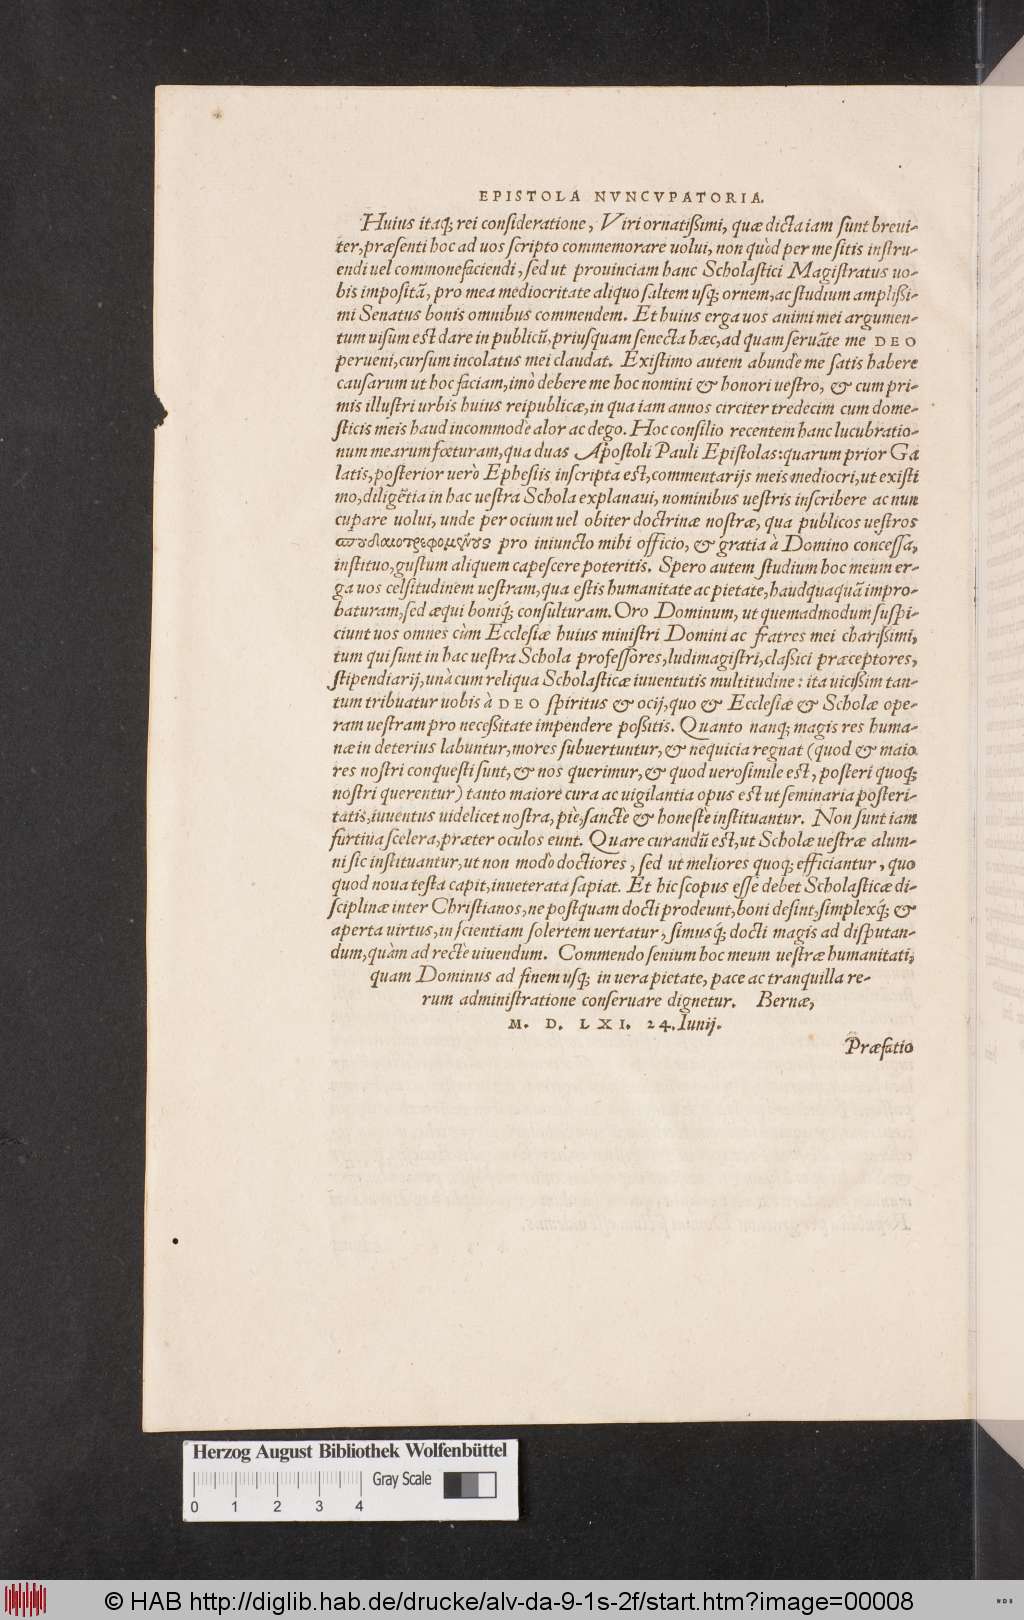 EPISTOLA NVNCVPATORIA.
Huius itaq; rei consideratione, Viri ornatißimi, quæ dicta iam sunt breui-
ter, præsenti hoc ad uos scripto commemorare uolui, non quòd per me sitis instru-
endi uel commonefaciendi, sed ut prouinciam hanc Scholastici Magistratus uo-
bis impositã, pro mea mediocritate aliquo saltem usq; ornem, ac studium amplißi-
mi Senatus bonis omnibus commendem. Et huius erga uos animi mei argumen-
tum uisum est dare in publicũ, priusquam senecta hæc, ad quam seruãte me DEO
perueni, cursum incolatus mei claudat. Existimo autem abunde me satis habere
causarum ut hoc faciam, imò debere me hoc nomini & honori uestro, & cum pri-
mis illustri urbis huius reipublicæ, in qua iam annos circiter tredecim cum dome-
sticis meis haud incommode alor ac dego. Hoc consilio recentem hanc lucubratio-
num mearum fœturam, qua duas Apostoli Pauli Epistolas: quarum prior Ga
latis, posterior uerò Ephesiis inscripta est, commentarijs meis mediocri, ut existi
mo, diligẽtia in hac uestra Schola explanaui, nominibus uestris inscribere ac nun
cupare uolui, unde per ocium uel obiter doctrinæ nostræ, qua publicos uestros
σπουδαιοτρεφομένους pro iniuncto mihi officio, & gratia à Domino concessa,
instituo, gustum aliquem capescere poteritis. Spero autem studium hoc meum er-
ga uos celsitudinem uestram, qua estis humanitate ac pietate, haudquaquã impro-
baturam, sed æqui boniq́; consulturam. Oro Dominum, ut quemadmodum suspi-
ciunt uos omnes cùm Ecclesiæ huius ministri Domini ac fratres mei charißimi,
tum qui sunt in hac uestra Schola professores, ludimagistri, classici præceptores,
stipendiarij, unà cum reliqua Scholasticæ iuuentutis multitudine: ita uicißim tan-
tum tribuatur uobis à DEO spiritus & ocij, quo & Ecclesiæ & Scholæ ope-
ram uestram pro neceßitate impendere poßitis. Quanto nanq; magis res huma-
næ in deterius labuntur, mores subuertuntur, & nequicia regnat (quod & maio
res nostri conquesti sunt, & nos querimur, & quod uerosimile est, posteri quoq;
nostri querentur) tanto maiore cura ac uigilantia opus est ut seminaria posteri-
tatis, iuuentus uidelicet nostra, piè, sanctè & honestè instituantur. Non sunt iam
furtiua scelera, præter oculos eunt. Quare curandũ est, ut Scholæ uestræ alum-
ni sic instituantur, ut non modò doctiores, sed ut meliores quoq; efficiantur, quo
quod noua testa capit, inueterata sapiat. Et hic scopus esse debet Scholasticæ di-
sciplinæ inter Christianos, ne postquam docti prodeunt, boni desint, simplexq́; &
aperta uirtus, in scientiam solertem uertatur, simusq́; docti magis ad disputan-
dum, quàm ad rectè uiuendum. Commendo senium hoc meum uestræ humanitati,
quam Dominus ad finem usq; in uera pietate, pace ac tranquilla re-
rum administratione conseruare dignetur. Bernæ,
M. D. LXI. 24. Iunij.
Præfatio
Herzog August Bibliothek Wolfenbüttel
Gray Scale
0 1 2 3 4
© HAB http://diglib.hab.de/drucke/alv-da-9-1s-2f/start.htm?image=00008